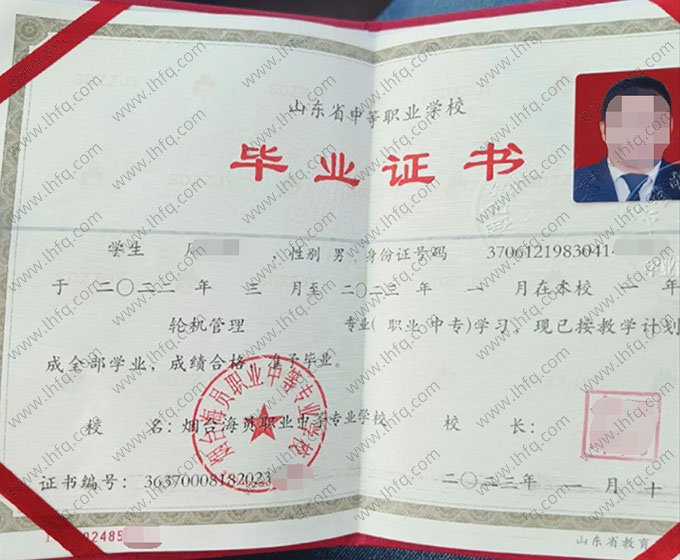 山东省中等职业学校
毕业证书
学生 , 性别 男, 身份证号码 3706121983041
于 二〇二二 年 三 月至 二〇二三 年 一 月在本校 一 年
轮机管理 专业( 职业 中专)学习, 现已按教学计划
成全部学业, 成绩合格, 准予毕业。
校 名: 烟台海员职业中等专业学校 校 长:
烟台海员职业中等专业学校
证书编号: 36370008182023
二〇二三年 一 月 十
02485
山东省教育
www.lhfq.com